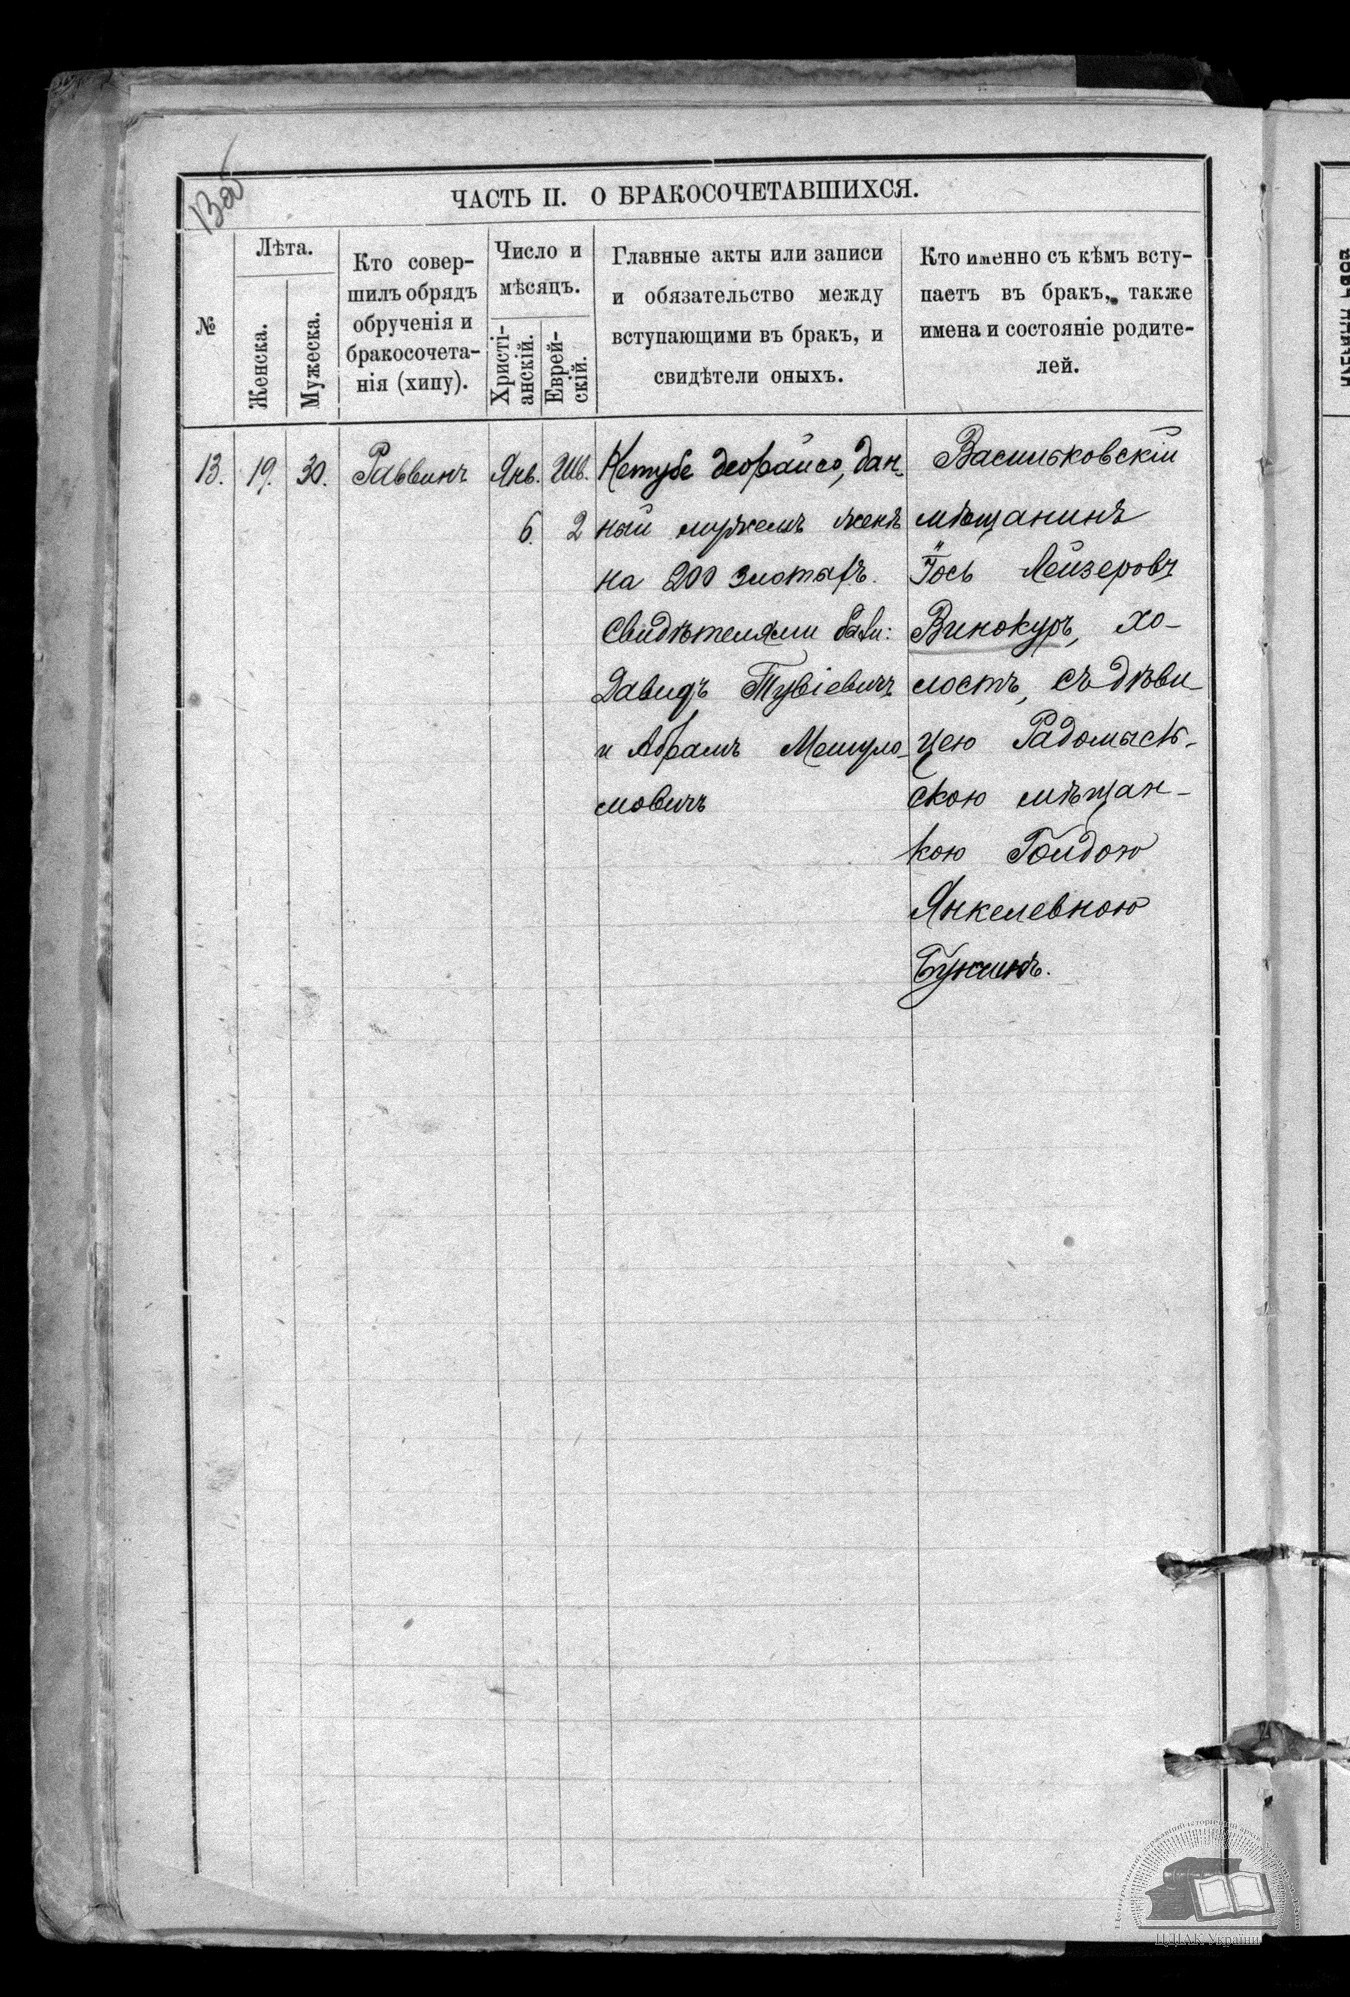 13об
ЧАСТЬ II. О БРАКОСОЧЕТАВШИХСЯ.
№
Лѣта.
Женска.
Мужеска.
Кто совер-
шилъ обрядъ
обрученія и
бракосочета-
нія (хипу).
Число и
мѣсяцъ.
Христі-
анскій.
Еврей-
скій.
Главные акты или записи
и обязательство между
вступающими въ бракъ, и
свидѣтели оныхъ.
Кто именно съ кѣмъ всту-
паетъ въ бракъ, также
имена и состояніе родите-
лей.
13.
19.
30.
Раввинъ
Янв.
6.
Шв.
2
Кетубе деорайсо, дан-
ный мужемъ женѣ
на 200 злотыхъ.
Свидѣтелями были:
Давидъ Тувіевичъ
и Абрамъ Мешуло-
мовичъ
Васильковскій
мѣщанинъ
Іось Лейзеровъ
Винокуръ, хо-
лостъ, съ дѣви-
цею Радомысль-
скою мѣщан-
кою Голдою
Янкелевною
ЦДІАК України